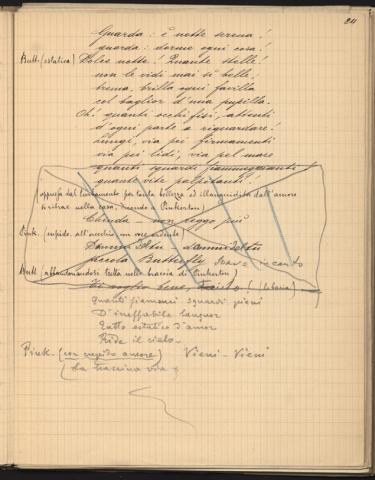 24
Guarda: è notte serena!
guarda: dorme ogni cosa!
Butt. (estatica) Dolce notte! Quante stelle!
non le vidi mai sì belle:
trema, brilla ogni favilla
col baglior d'una pupilla.
Oh! quanti occhi fisi, attenti
d'ogni parte a riguardare!
Lungi, via pei firmamenti
via pei lidi, via pel mare
quanti sguardi fiammeggianti!
quante vite palpitanti!
(oppressa dal turbamento per tanta bellezza ed illanguidita dall'amore
rientrare nella casa, dicendo a Pinkerton)
Chiuda non reggo più
Pink. (cupido, all'orecchio, con voce ardente)
piccola Butterfly Soave incanto
Butt. (abbandonandosi tutta nelle braccia di Pinkerton)
Ti voglio bene,
Quanti fiammei sguardi pieni
D'ineffabile languor
Tutto estatico d'amor
Ride il cielo.
Pink. (con cupido amore) Vieni - Vieni
(La trascina via)